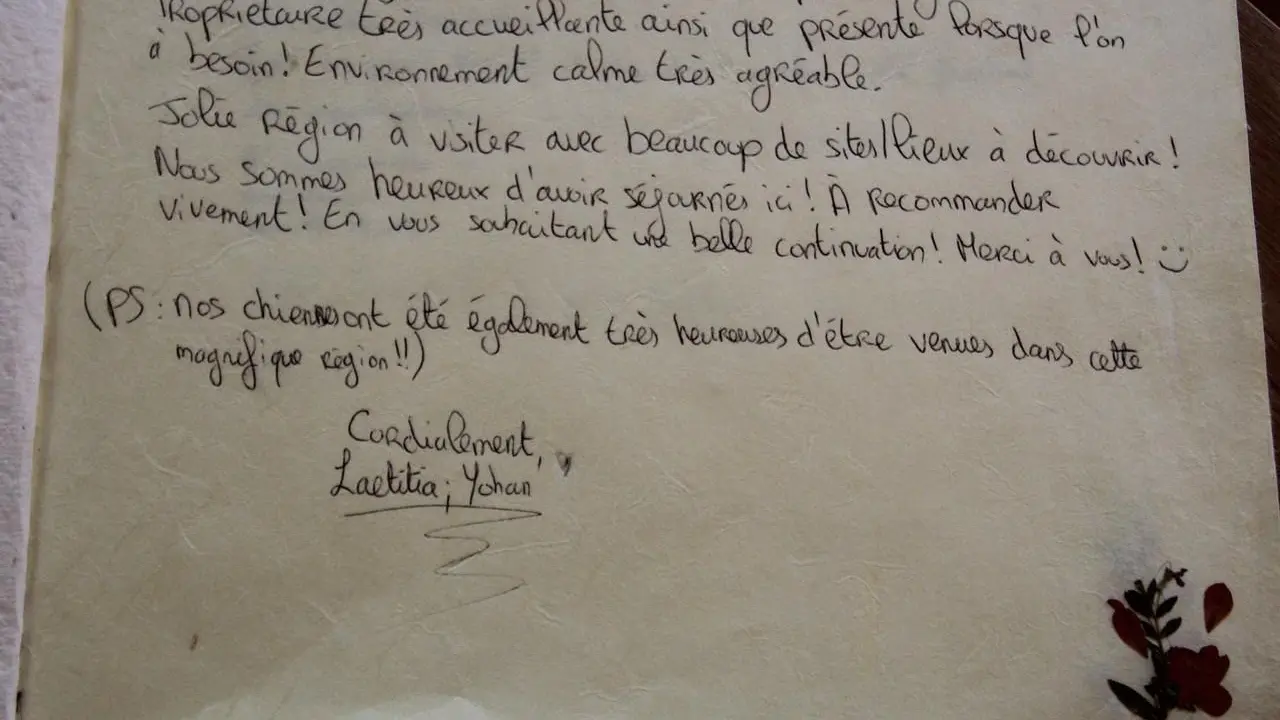 Propriétaire très accueillante ainsi que présente lorsque l'on
à besoin! Environnement calme très agréable.
Jolie région à visiter avec beaucoup de sites/lieux à découvrir!
Nous sommes heureux d'avoir séjournés ici! À recommander
vivement! En vous souhaitant une belle continuation! Merci à vous! :)
(PS: nos chiennes ont été également très heureuses d'être venues dans cette
magnifique région!!)
Cordialement,
Laetitia; Yohan